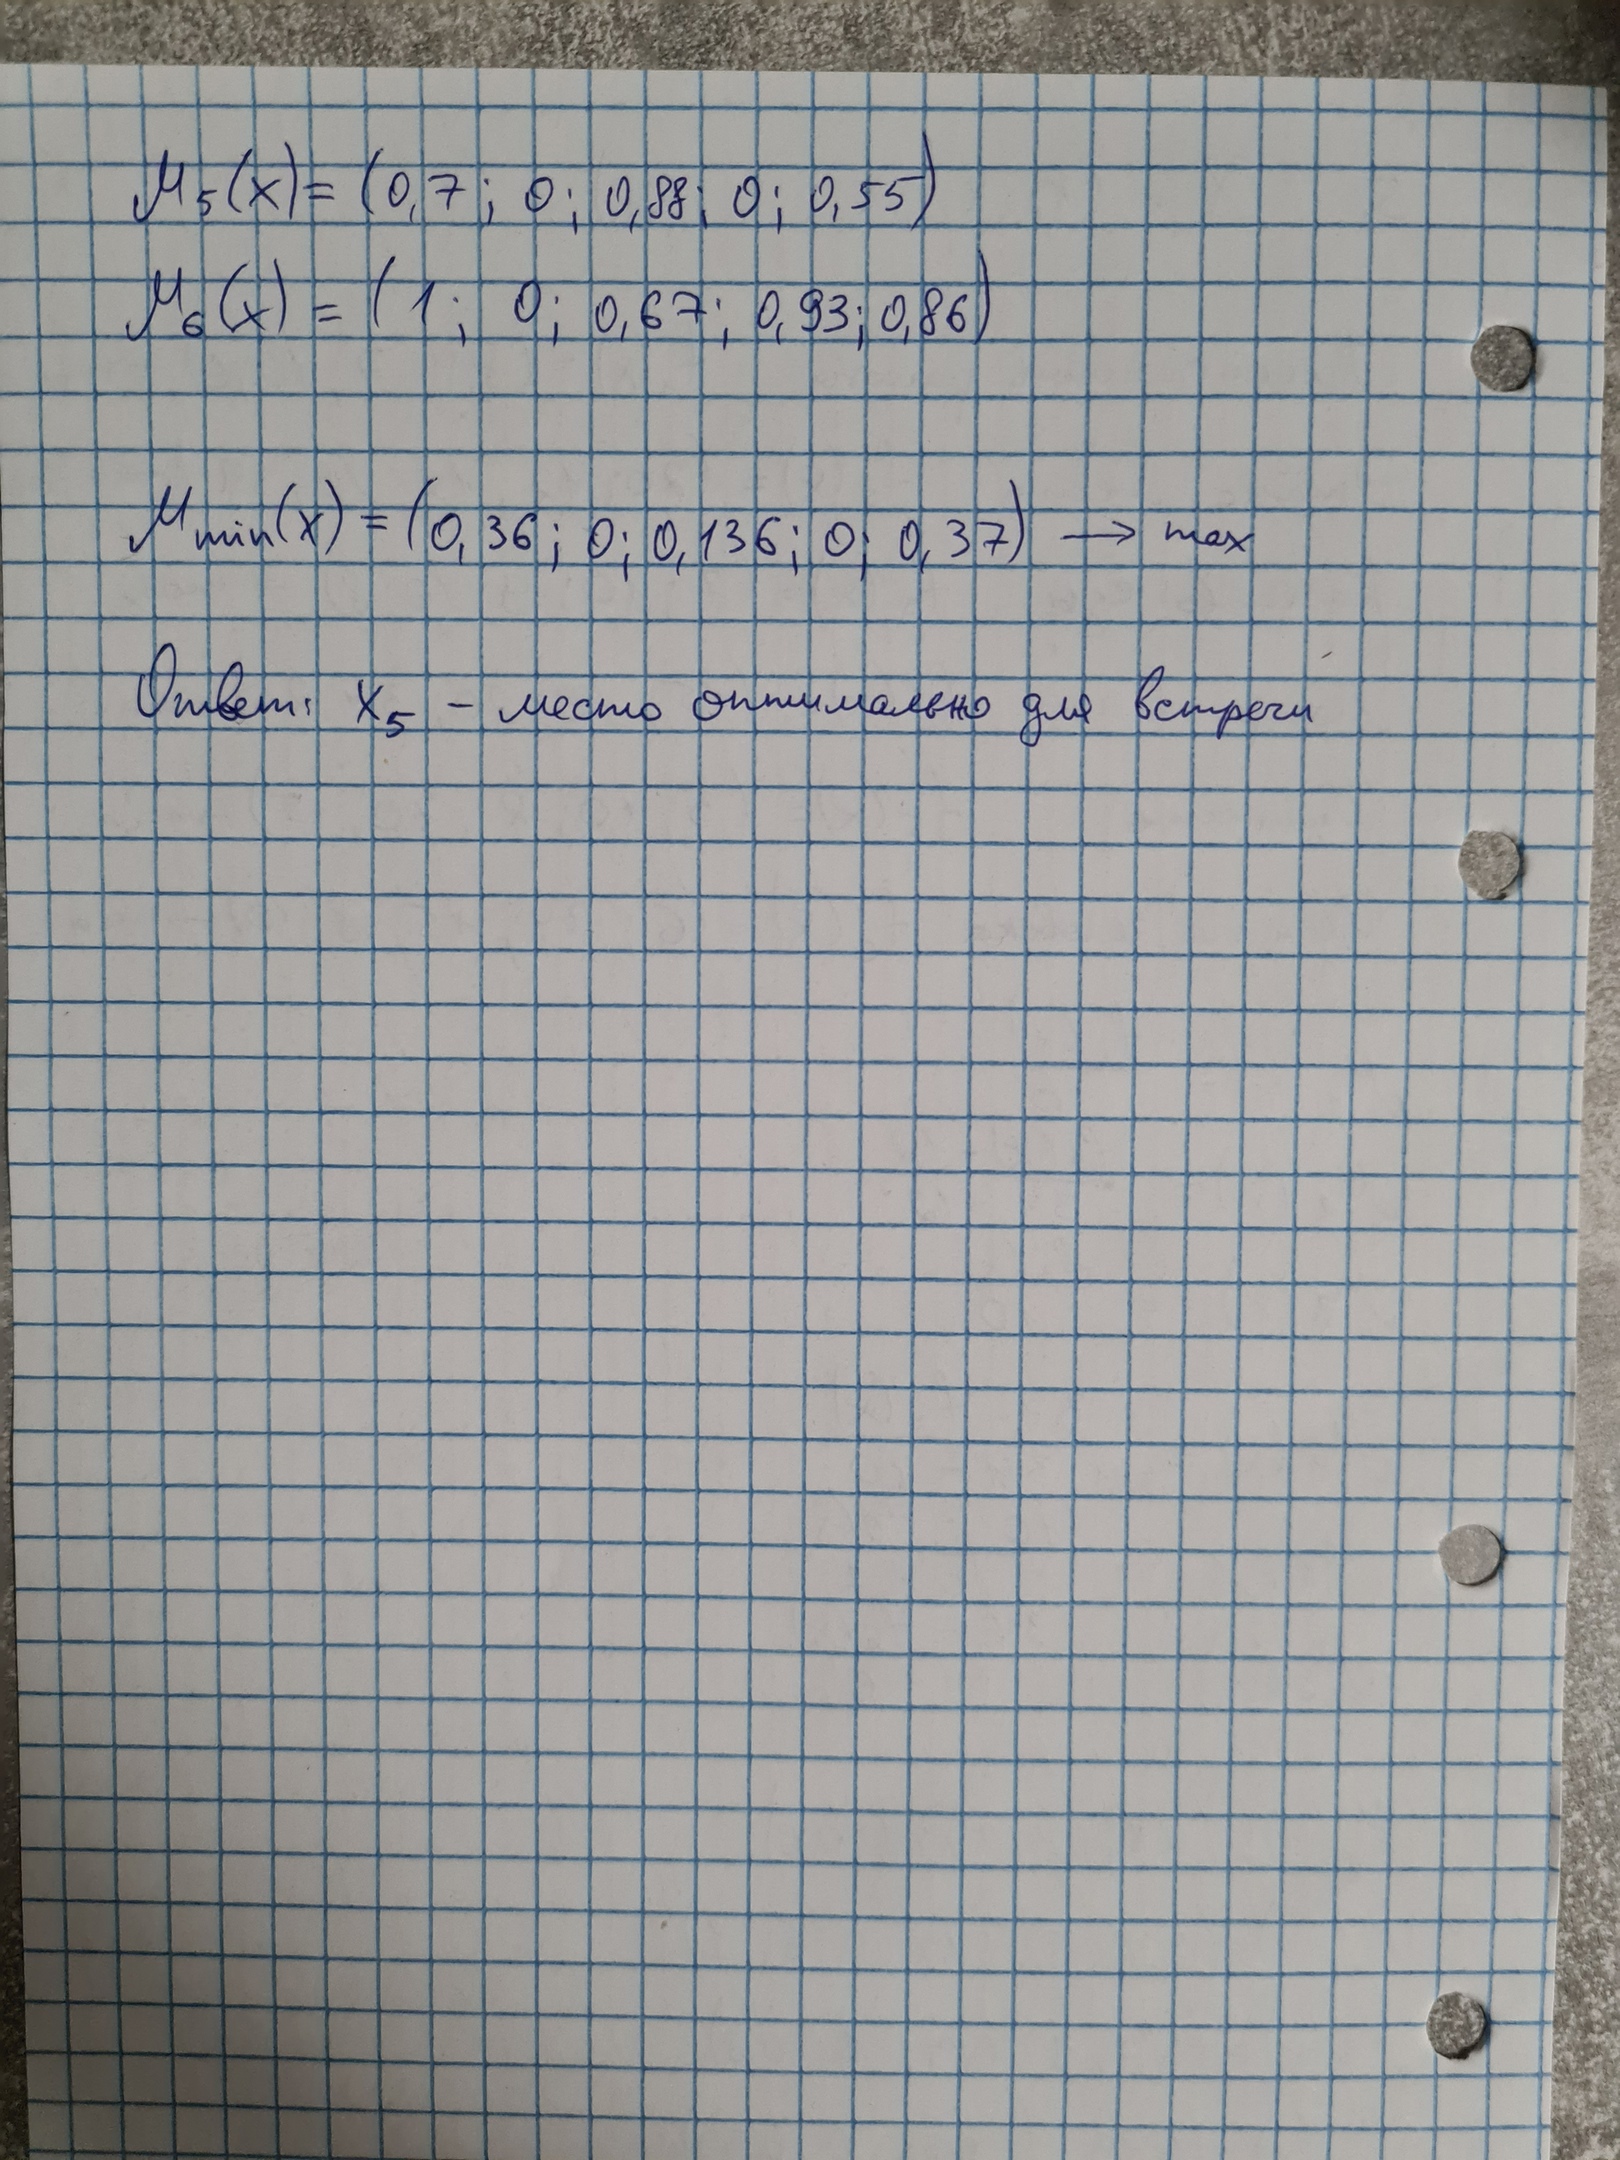 μ₅(x) = (0,7; 0; 0,88; 0; 0,55)
μ₆(x) = (1; 0; 0,67; 0,93; 0,86)
μmin(x) = (0,36; 0; 0,136; 0; 0,37) → max
Ответ: x₅ - место оптимально для встречи